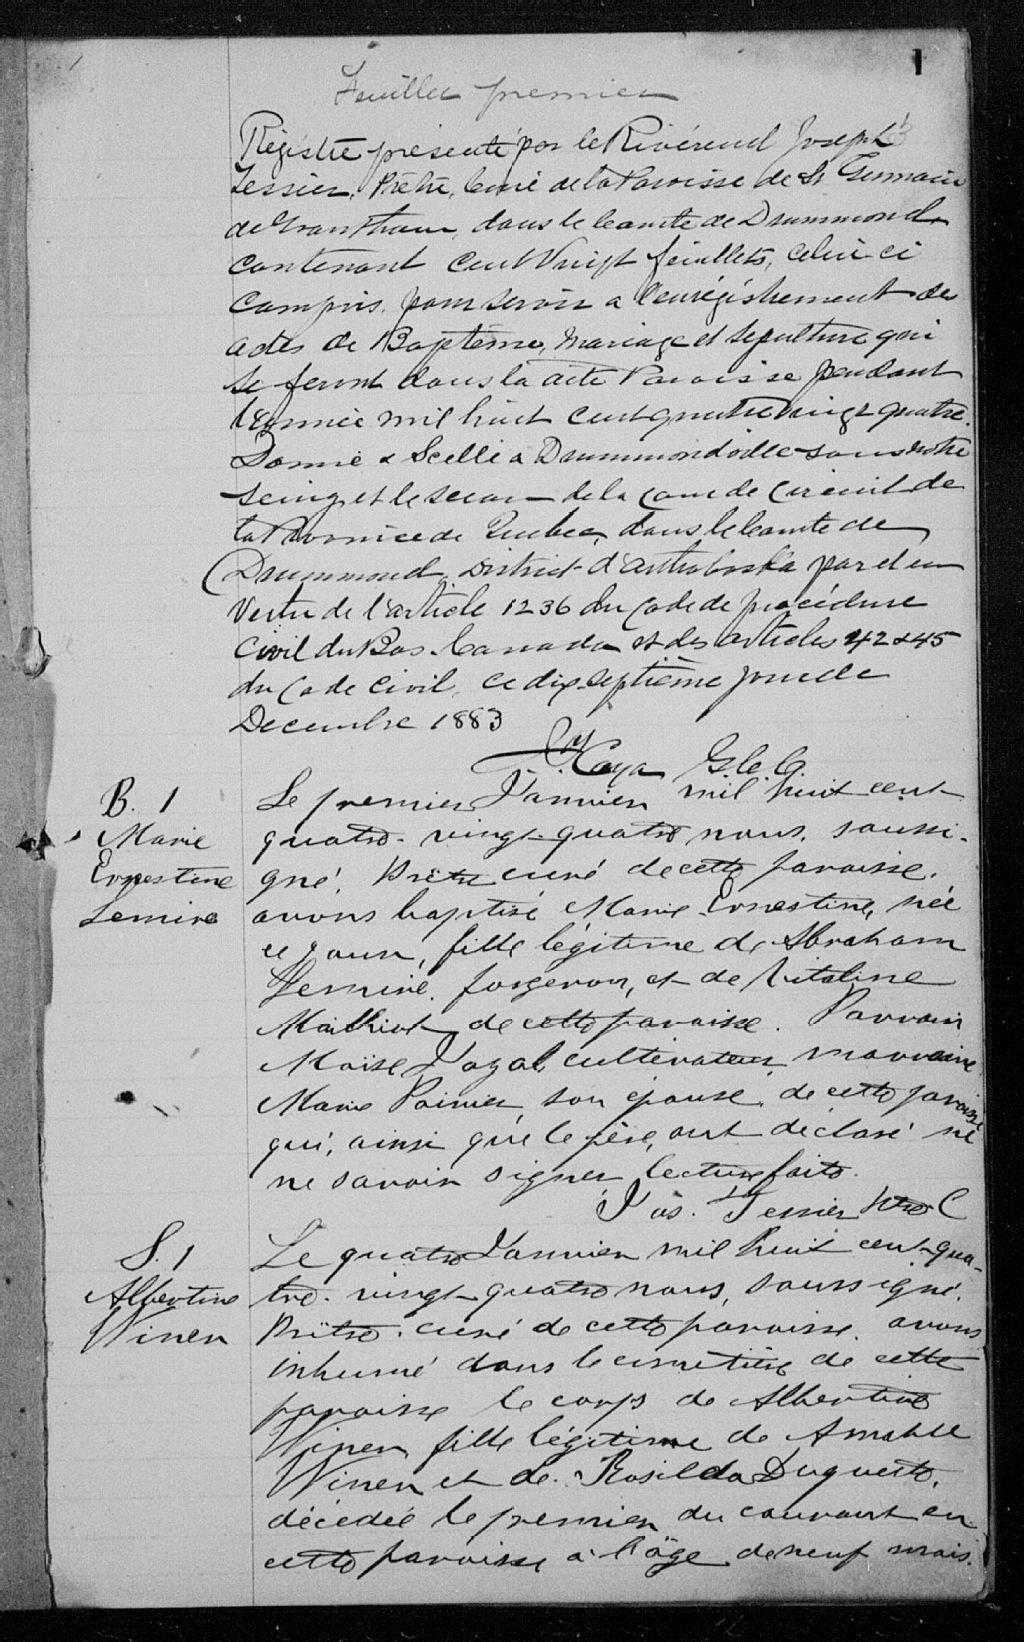 1
Feuillet premier
Régistre présenté par le Révérend Joseph
Tessier, Prêtre, Curé de la Paroisse de St Germain
de Grantham, dans le Comté de Drummond
contenant cent vingt feuillets, celui-ci
compris, pour servir a l'enrégistrement des
actes de Baptême, mariage et sepulture qui
se feront dans la dite Paroisse pendant
l'Année mil huit cent quatre vingt quatre.
Donné & Scellé a Drummondville sous notre
seing et le sceau de la Cour de Circuit de
la Province de Quebec, dans le Comté de
Drummond, District d'Arthabaska par et en
Vertu de l'article 1236 du Code de procédure
Civil du Bas-Canada et des articles 42 & 45
du Code Civil, ce dix-septième jour de
Decembre 1883
G.C.C.
B. 1
Marie
Ernestine
Lemire
Le premier Janvier mil huit cent
quatre-vingt-quatre nous, soussi-
gné, Prêtre curé de cette paroisse,
avons baptisé Marie-Ernestine, née
ce jour, fille légitime de Abraham
Lemire, forgeron, et de Vitaline
Mailhiot de cette paroisse. Parrain
Moïse cultivateur, marraine
Marie Poirier, son épouse, de cette paroisse
qui, ainsi que le père, ont déclaré ne
ne savoir signer lecture faite.
Jos. Tessier Ptre C
S. 1
Albertine
Winen
Le quatre Janvier mil huit cent-qua-
tre-vingt-quatre nous, soussigné,
Prêtre-curé de cette paroisse, avons
inhumé dans le cimetière de cette
paroisse le corps de Albertine
Winen, fille légitime de Amable
Winen et de Rosilda Duguette,
décédée le premier du courant en
cette paroisse a l'âge de neuf mois.